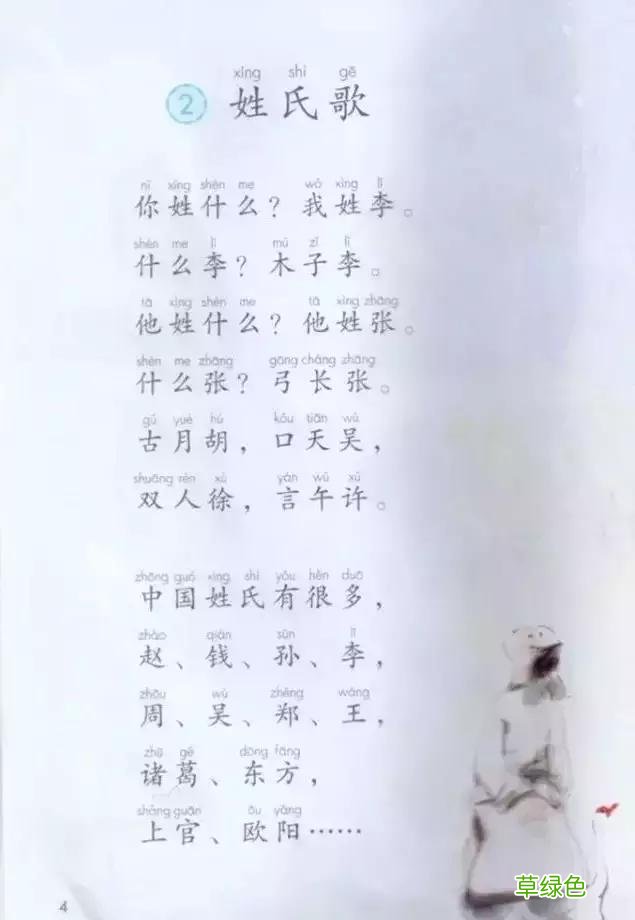 xìng shì gē
② 姓氏歌
nǐ xìng shén me wǒ xìng lǐ
你姓什么？我姓李。
shén me lǐ mù zǐ lǐ
什么李？木子李。
tā xìng shén me tā xìng zhāng
他姓什么？他姓张。
shén me zhāng gōng cháng zhāng
什么张？弓长张。
gǔ yuè hú kǒu tiān wú
古月胡，口天吴，
shuāng rén xú yán wǔ xǔ
双人徐，言午许。
zhōng guó xìng shì yǒu hěn duō
中国姓氏有很多，
zhào qián sūn lǐ
赵、钱、孙、李，
zhōu wú zhèng wáng
周、吴、郑、王，
zhū gě dōng fāng
诸葛、东方，
shàng guān ōu yáng
上官、欧阳……
4
草绿色